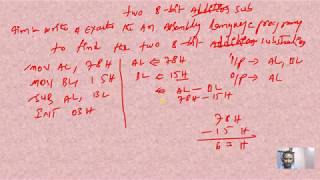 two 8-bit sub
Aim: Write & Execute to An Assembly Language programy
to find the two 8-bit substractiy
MOV AL, 78H
MOV BL, 15H
SUB AL, BL
INT 03H
AL ← 78H
BL ← 15H
← AL - BL
78H - 15H
I/P → AL, BL
O/P → AL
78H
- 15H
6 H